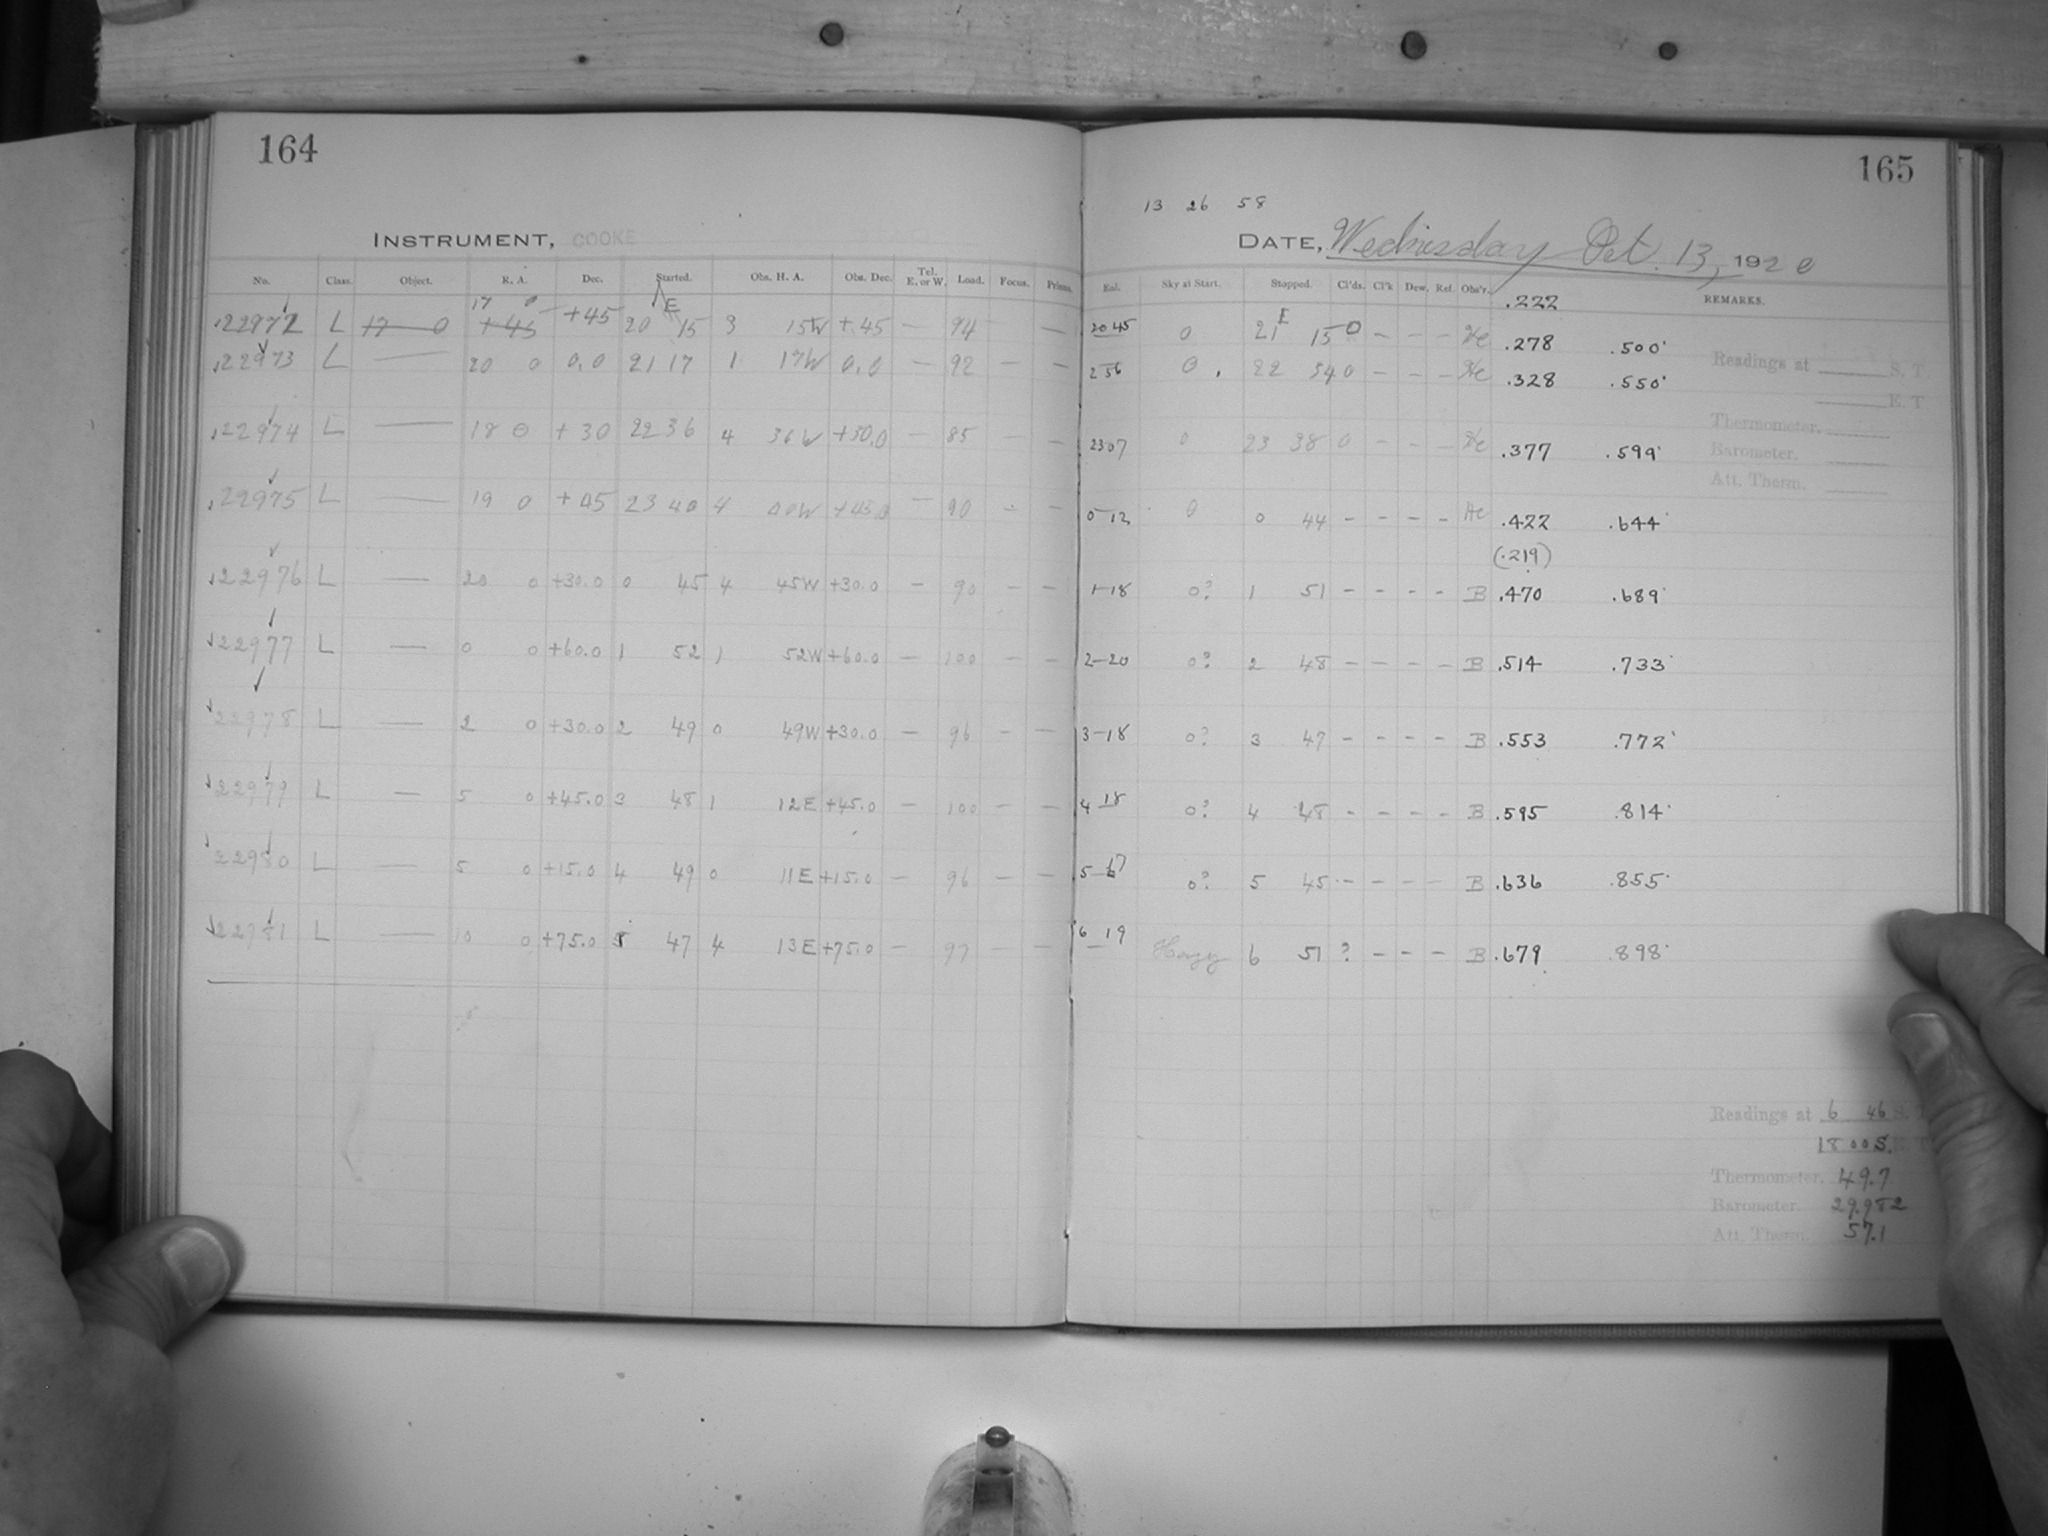 164
INSTRUMENT, COOKE
No. Class. Object. R. A. Dec. Started. Obs. H. A. Obs. Dec. Tel. E. or W. Load. Focus. Prisms.
17 0
22972 L 17 0 +45 +45 20 E 15 3 15W +45 — 94 —
22973 L — 20 0 0,0 21 17 1 17W 0,0 — 92 — —
22974 L — 18 0 +30 22 36 4 36W +30,0 — 85 — —
22975 L — 19 0 +45 23 40 4 40W +45,0 — 90 - —
22976 L — 20 0 +30.0 0 45 4 45W +30.0 — 90 — —
22977 L — 0 0 +60.0 1 52 1 52W +60.0 — 100 — —
22978 L — 2 0 +30.0 2 49 0 49W +30.0 — 96 — —
22979 L — 5 0 +45.0 3 48 1 12E +45.0 — 100 — —
22980 L — 5 0 +15.0 4 49 0 11E +15.0 — 96 — —
22981 L — 10 0 +75.0 5 47 4 13E +75.0 — 97 — —
165
13 26 58
DATE, Wednesday Oct. 13, 1920
Sky at Start. Stopped. Cl'ds. Cl'k Dew. Ref. Obs'r. REMARKS.
.222
20 45 0 21 E 15 0 - - - He .278 .500
0 22 54 0 - - - He .328 .550
23 07 0 23 38 0 - - - He .377 .599
0 12 0 0 44 - - - - He .422 .644
(.219)
1-18 0? 1 51 - - - - B .470 .689
2-20 0? 2 48 - - - - B .514 .733
3-18 0? 3 47 - - - - B .553 .772
4 18 0? 4 48 - - - - B .595 .814
5 17 0? 5 45 - - - - B .636 .855
6 19 Hazy 6 51 ? - - - B .679 .898
Readings at S. T.
E. T
Thermometer.
Barometer.
Att. Therm.
Readings at 6 46 S.
18 00 S.
Thermometer. 49.7
Barometer. 29.982
Att. Therm. 57.1